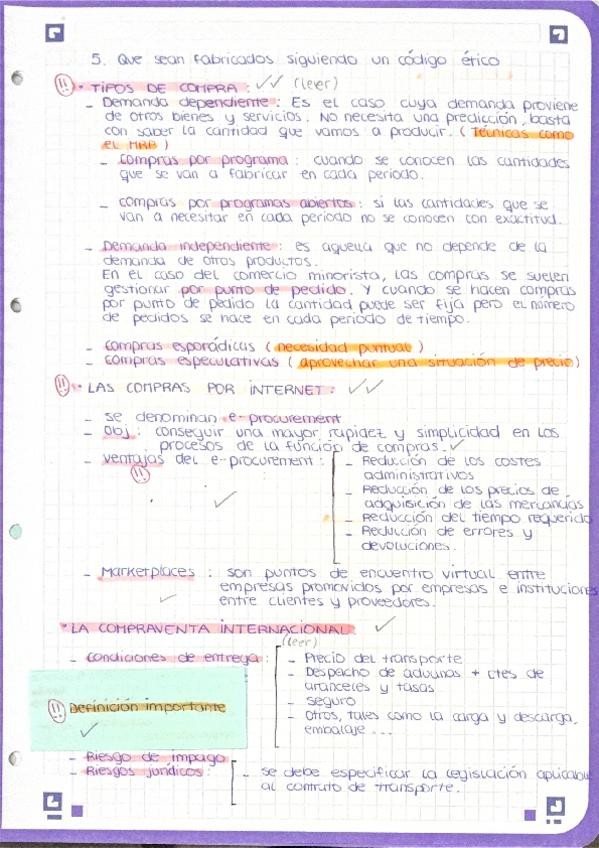 5. Que sean fabricados siguiendo un código ético
!! • TIPOS DE COMPRA: (leer)
- Demanda dependiente: Es el caso cuya demanda proviene
de otros bienes y servicios. No necesita una predicción, basta
con saber la cantidad que vamos a producir. (Técnicas como
el MRP)
- compras por programa: cuando se conocen las cantidades
que se van a fabricar en cada periodo.
- compras por programas abiertos: si las cantidades que se
van a necesitar en cada periodo no se conocen con exactitud.
- Demanda independiente: es aquella que no depende de la
demanda de otros productos.
En el caso del comercio minorista, las compras se suelen
gestionar por punto de pedido. Y cuando se hacen compras
por punto de pedido la cantidad puede ser fija pero el número
de pedidos se hace en cada periodo de tiempo.
- compras esporádicas (necesidad puntual)
- compras especulativas (aprovechar una situación de precio)
!! • LAS COMPRAS POR INTERNET:
- se denominan e-procurement
- Obj: conseguir una mayor rapidez y simplicidad en los
procesos de la función de compras.
- ventajas del e-procurement:
!!
- Reducción de los costes
administrativos
- Reducción de los precios de
adquisición de las mercancías
- Reducción del tiempo requerido
- Reducción de errores y
devoluciones.
- Marketplaces: son puntos de encuentro virtual entre
empresas promovidos por empresas e instituciones
entre clientes y proveedores.
• LA COMPRAVENTA INTERNACIONAL
(leer)
- condiciones de entrega:
- Precio del transporte
- Despacho de aduanas + ctes de
aranceles y tasas
- seguro
- Otros, tales como la carga y descarga,
embalaje...
!! Definición importante
- Riesgo de impago
- Riesgos jurídicos:
- se debe especificar la legislación aplicable
al contrato de transporte.